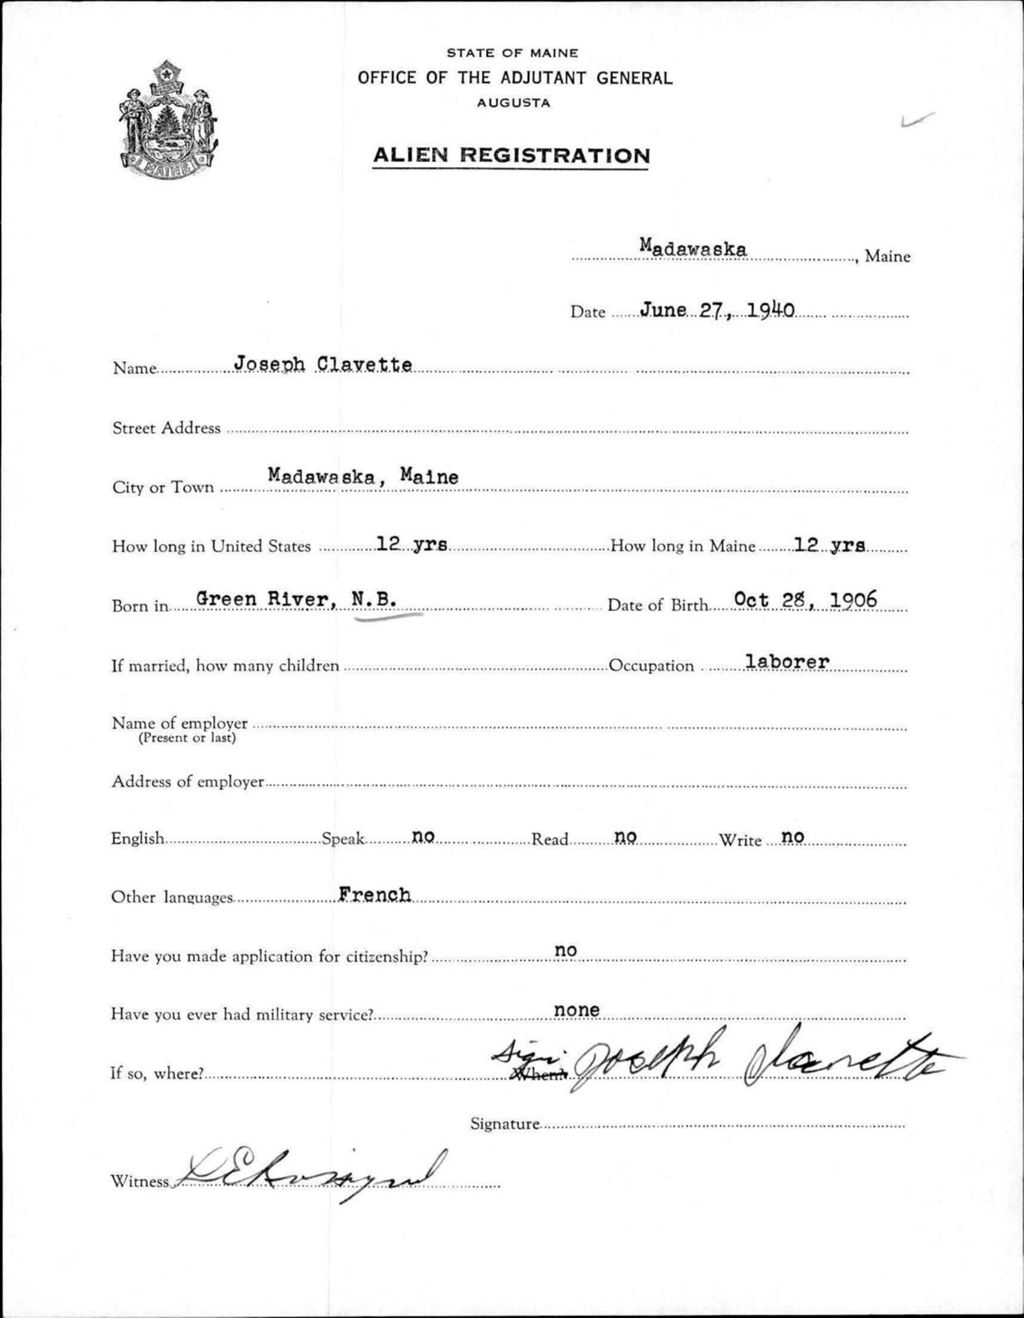 STATE OF MAINE
OFFICE OF THE ADJUTANT GENERAL
AUGUSTA
ALIEN REGISTRATION
MAINE
Madawaska, Maine
Date June 27, 1940
Name Joseph Clavette
Street Address
City or Town Madawaska, Maine
How long in United States 12 yrs How long in Maine 12 yrs
Born in Green River, N.B. Date of Birth Oct 28, 1906
If married, how many children Occupation laborer
Name of employer
(Present or last)
Address of employer
English Speak no Read no Write no
Other languages French
Have you made application for citizenship? no
Have you ever had military service? none
If so, where? When? Sign: Joseph Clavette
Signature
Witness